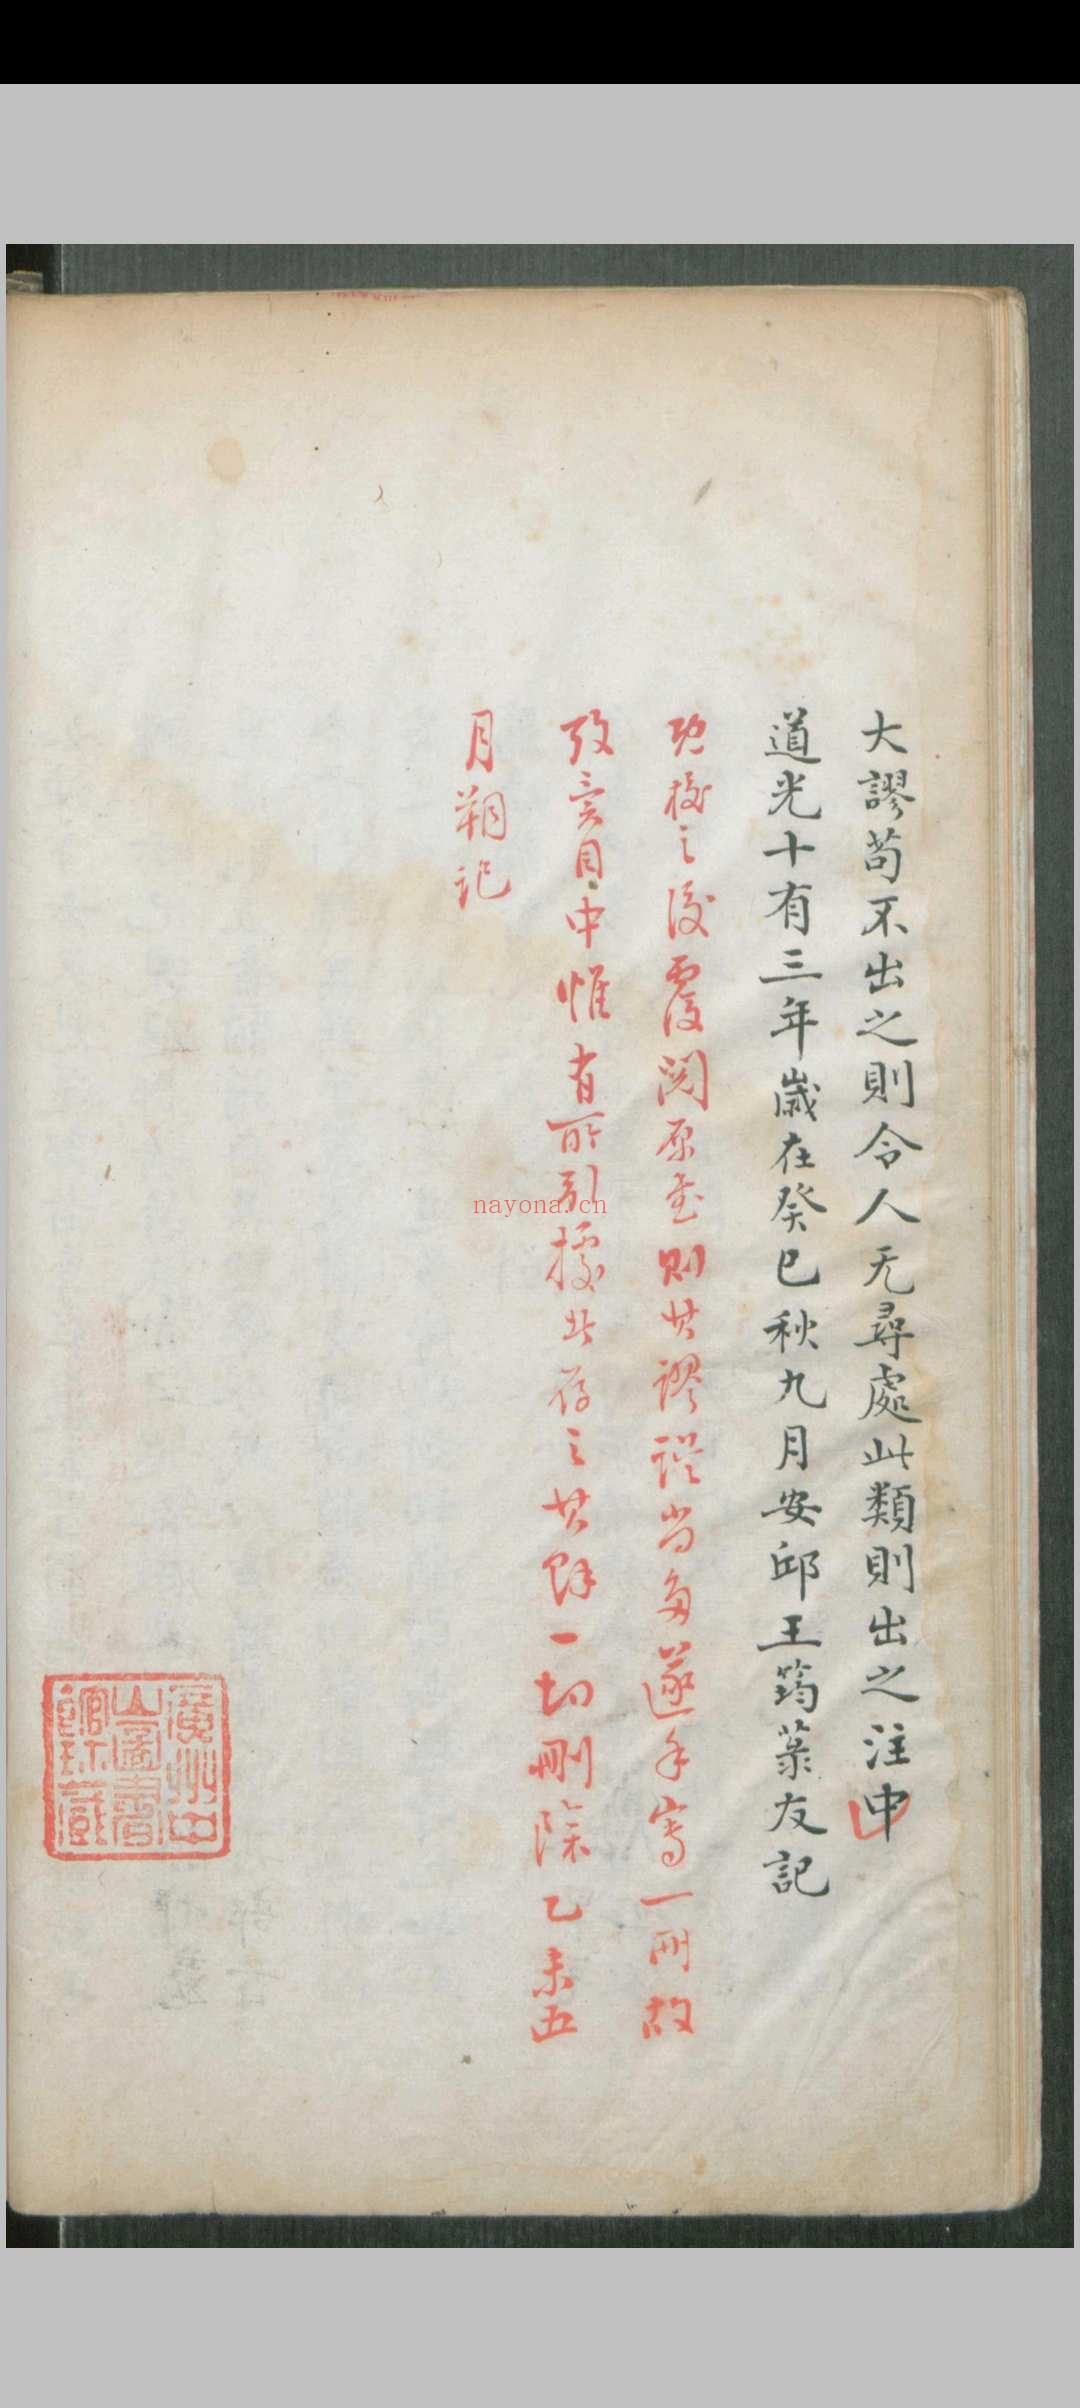 大謬苟不出之則令人无尋處此類則出之注中
道光十有三年歲在癸巳秋九月安邱王筠菉友記
既校之後覆閱原書則其謬誤尚多遂手寫一冊故
於
目中惟有所引據者存之其餘一切刪除乙未五
月朔記
廣州中
山圖書
館珍藏
nayona.cn